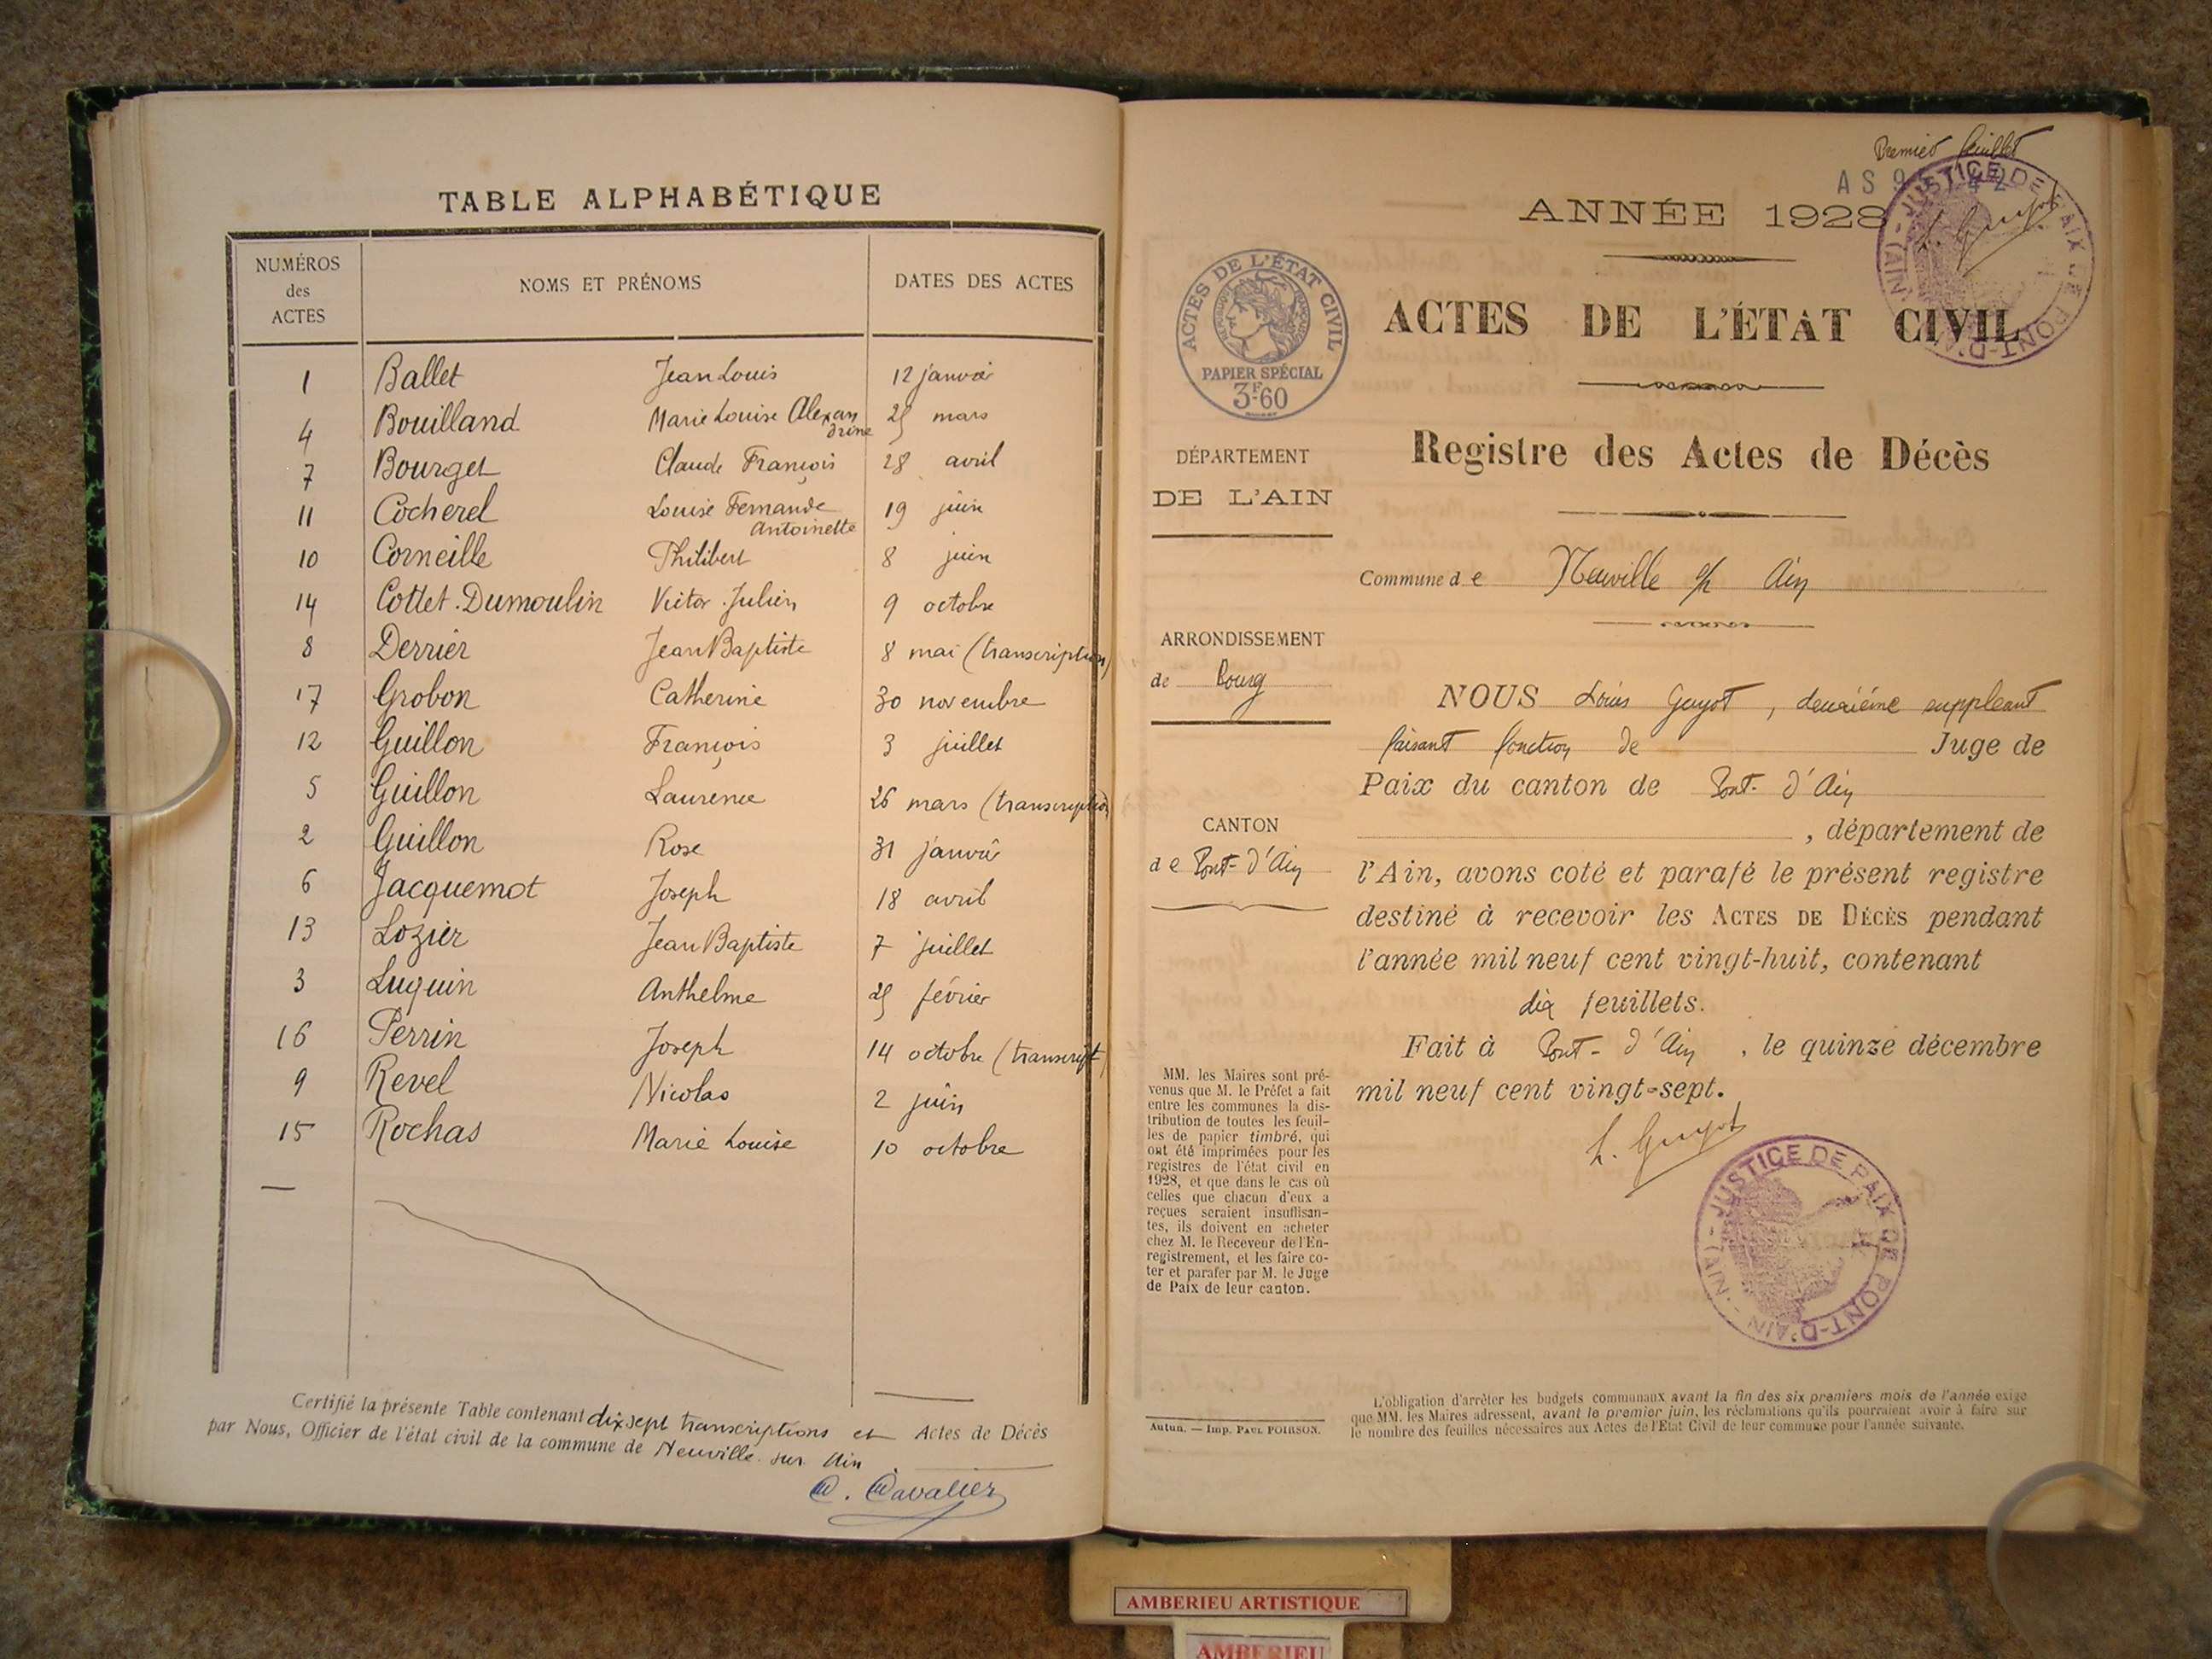 TABLE ALPHABÉTIQUE
NUMÉROS des ACTES NOMS ET PRÉNOMS DATES DES ACTES
1 Ballet Jean Louis 12 janvier
4 Bouilland Marie Louise Alexandrine 25 mars
7 Bourget Claude François 28 avril
11 Cocherel Louise Fernande Antoinette 19 juin
10 Corneille Philibert 8 juin
14 Cottet-Dumoulin Victor Julien 9 octobre
8 Derrier Jean Baptiste 8 mai (transcription)
17 Grobon Catherine 30 novembre
12 Guillon François 3 juillet
5 Guillon Laurence 26 mars (transcription)
2 Guillon Rose 31 janvier
6 Jacquemot Joseph 18 avril
13 Lozier Jean Baptiste 7 juillet
3 Luquin Anthelme 25 février
16 Perrin Joseph 14 octobre (transcript)
9 Revel Nicolas 2 juin
15 Rochas Marie Louise 10 octobre
Certifié la présente Table contenant dix sept transcriptions et Actes de Décès
par Nous, Officier de l'état civil de la commune de Neuville sur Ain
C. Cavalier
Premier feuillet
AS 9
L. Guyot
JUSTICE DE PAIX DE PONT-D'AIN - (AIN) -
ANNÉE 1928
ACTES DE L'ÉTAT CIVIL
ACTES DE L'ÉTAT CIVIL
RÉPUBLIQUE FRANÇAISE
PAPIER SPÉCIAL
3F60
Registre des Actes de Décès
DÉPARTEMENT
DE L'AIN
Commune de Neuville s/ Ain
ARRONDISSEMENT
de Bourg
CANTON
de Pont-d'Ain
NOUS Louis Guyot, deuxième suppleant
faisant fonction de Juge de
Paix du canton de Pont-d'Ain
, département de
l'Ain, avons coté et parafé le présent registre
destiné à recevoir les ACTES DE DÉCÈS pendant
l'année mil neuf cent vingt-huit, contenant
dix feuillets.
Fait à Pont-d'Ain, le quinze décembre
mil neuf cent vingt-sept.
L. Guyot
JUSTICE DE PAIX DE PONT-D'AIN - (AIN) -
MM. les Maires sont pré-
venus que M. le Préfet a fait
entre les communes la dis-
tribution de toutes les feuil-
les de papier timbré, qui
ont été imprimées pour les
registres de l'état civil en
1928, et que dans le cas où
celles que chacun d'eux a
reçues seraient insuffisan-
tes, ils doivent en acheter
chez M. le Receveur de l'En-
registrement, et les faire co-
ter et parafer par M. le Juge
de Paix de leur canton.
Autun. — Imp. PAUL POIRSON.
L'obligation d'arrêter les budgets communaux avant la fin des six premiers mois de l'année exige
que MM. les Maires adressent, avant le premier juin, les réclamations qu'ils pourraient avoir à faire sur
le nombre des feuilles nécessaires aux Actes de l'Etat Civil de leur commune pour l'année suivante.
AMBERIEU ARTISTIQUE
AMBERIEU